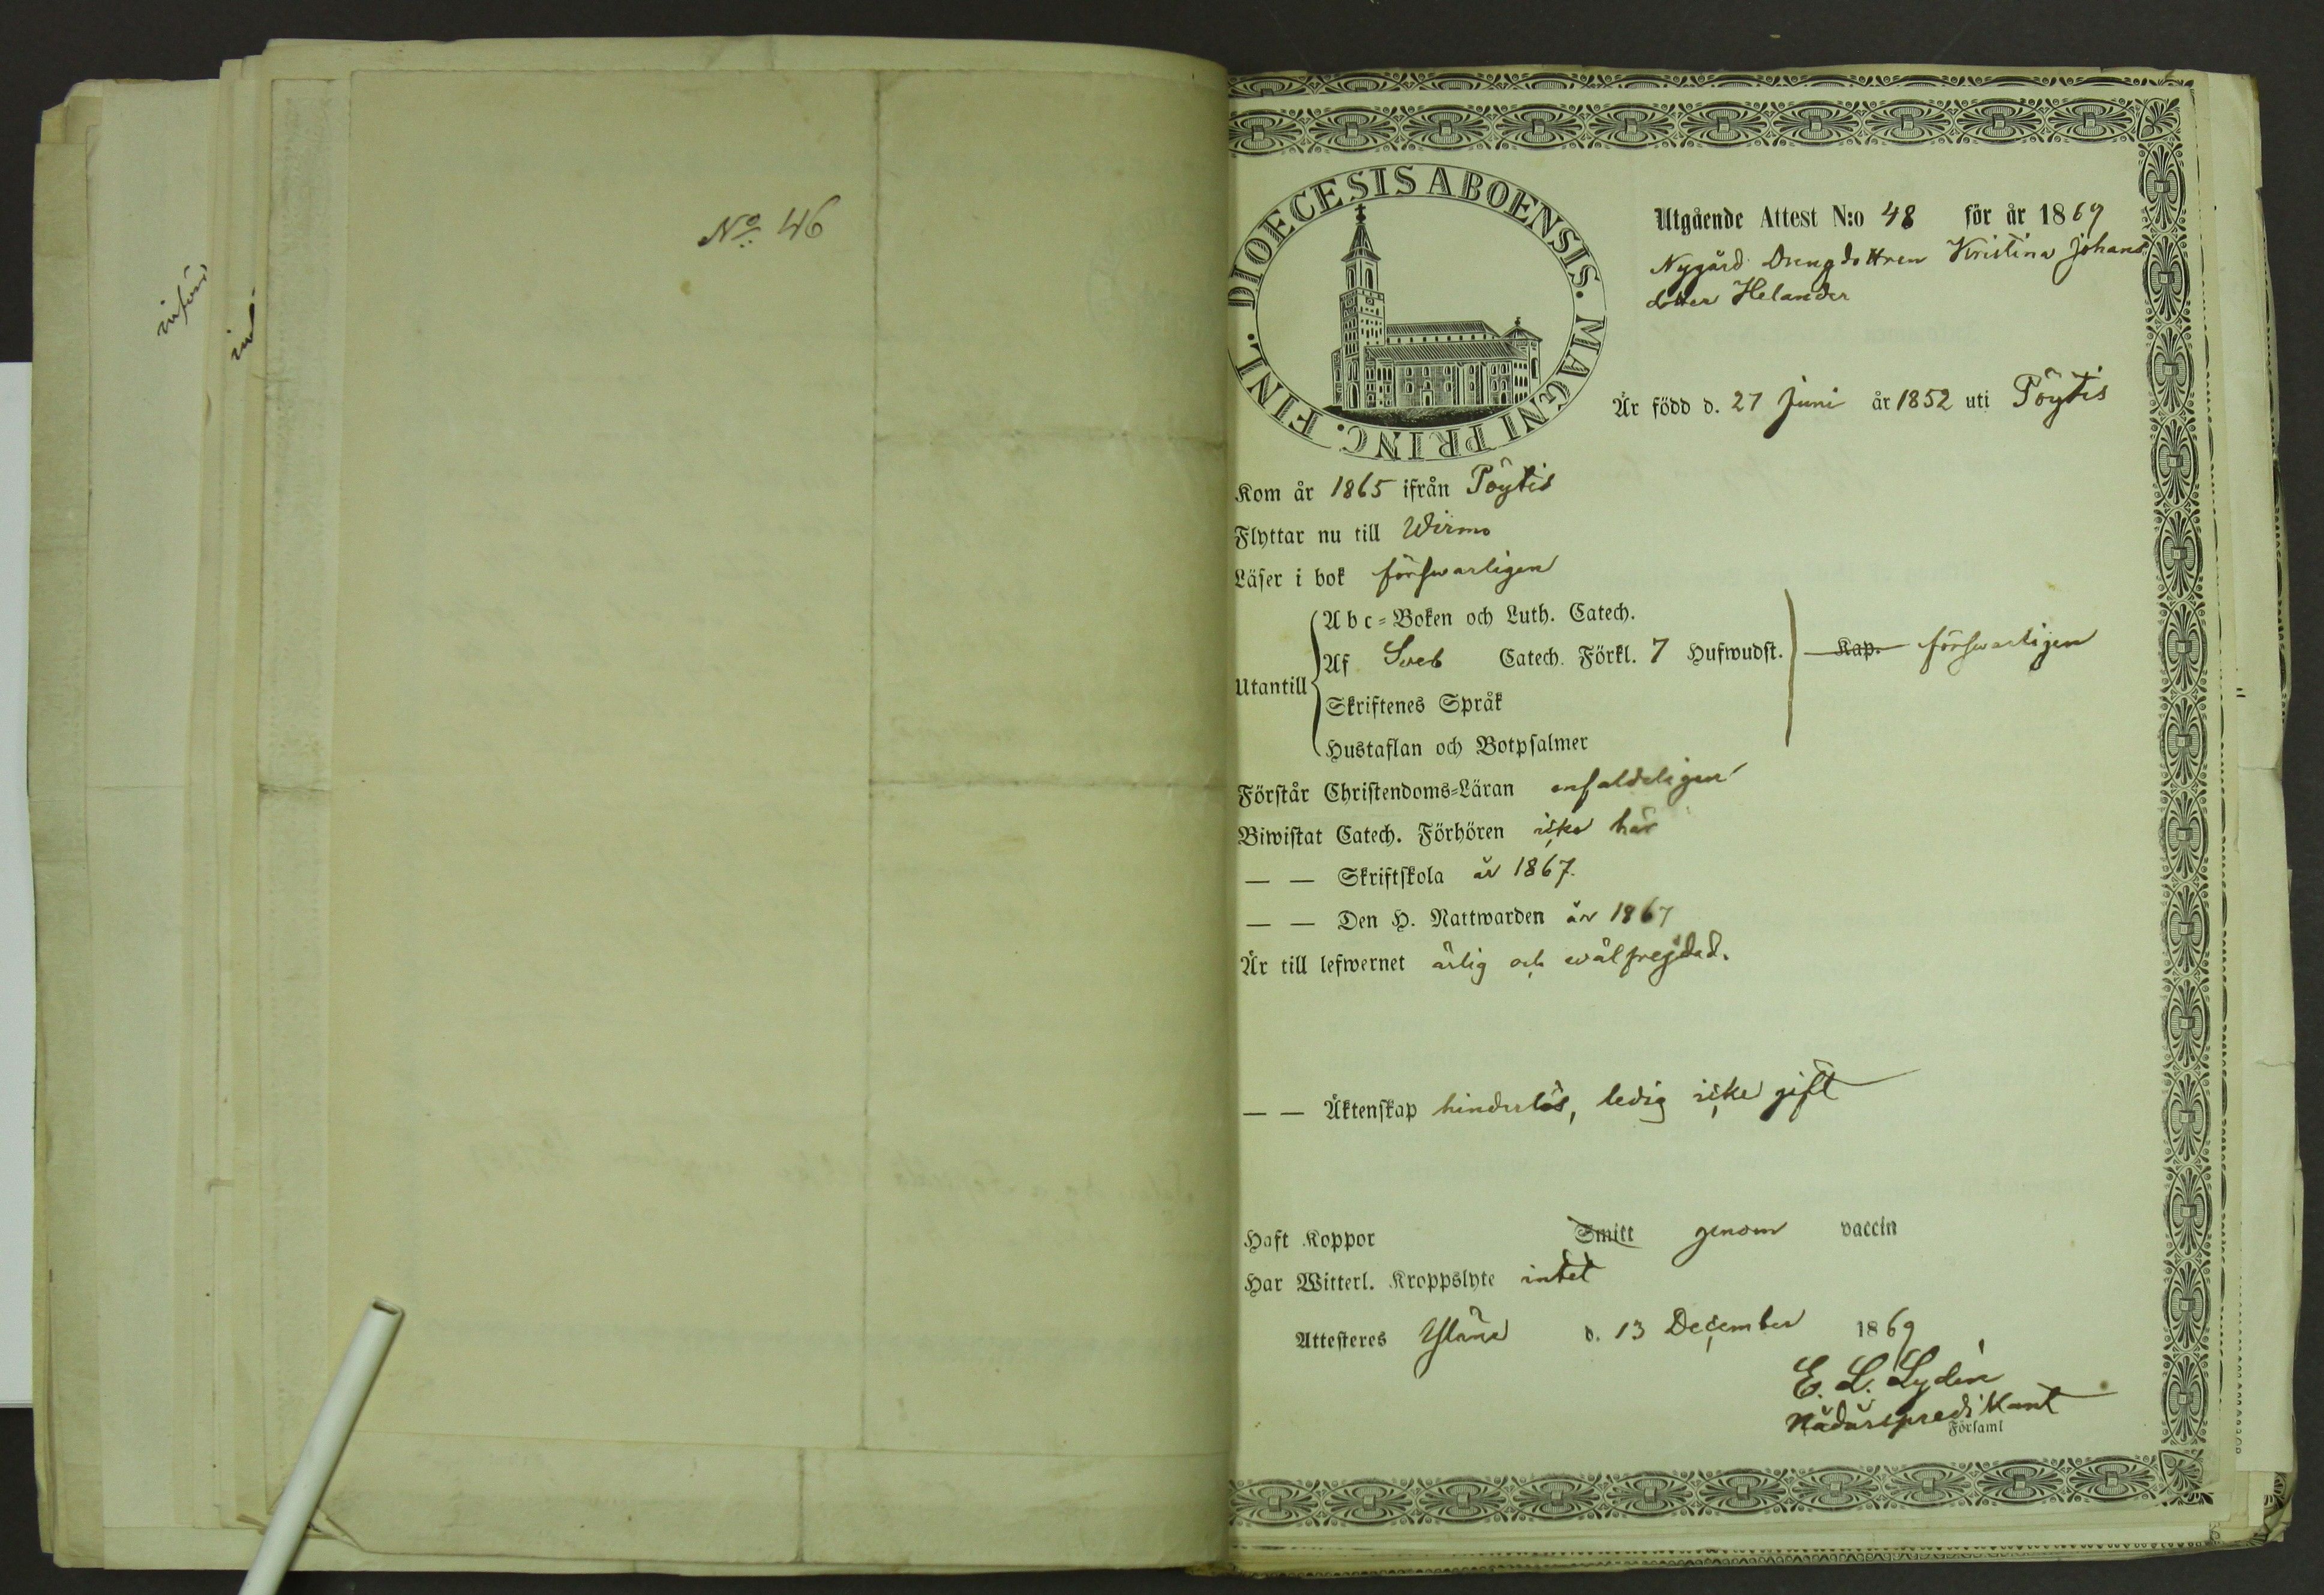 införd
inf
No 46
DIOECESIS ABOENSIS. MAGNI PRINC. FINL.
Utgående Attest N:o 48 för år 1869
Nygård Drengdottren Kristina Johans
dotter Helander
Är född d. 27 Juni år 1852 uti Pöytis
Kom år 1865 ifrån Pöytis
Flyttar nu till Wirmo
Läser i bok förswarligen
Utantill
Abc-Boken och Luth. Catech.
Af Sveb Catech. Förkl. 7 Hufwudst. Kap. förswarligen
Skriftenes Språk
Hustaflan och Botpsalmer
Förstår Christendoms-Läran enfaldeligen
Biwistat Catech. Förhören icke här
— — Skriftskola år 1867.
— — Den H. Nattwarden år 1867
Är till lefwernet ärlig och wälfrejdad.
— — Äktenskap hinderlös, ledig icke gift
Haft Koppor Smitt genom vaccin
Har Witterl. Kroppslyte intet
Attesteres Yläne d. 13 December 1869
E. L. Lydén
Nådårspredikant
Församl